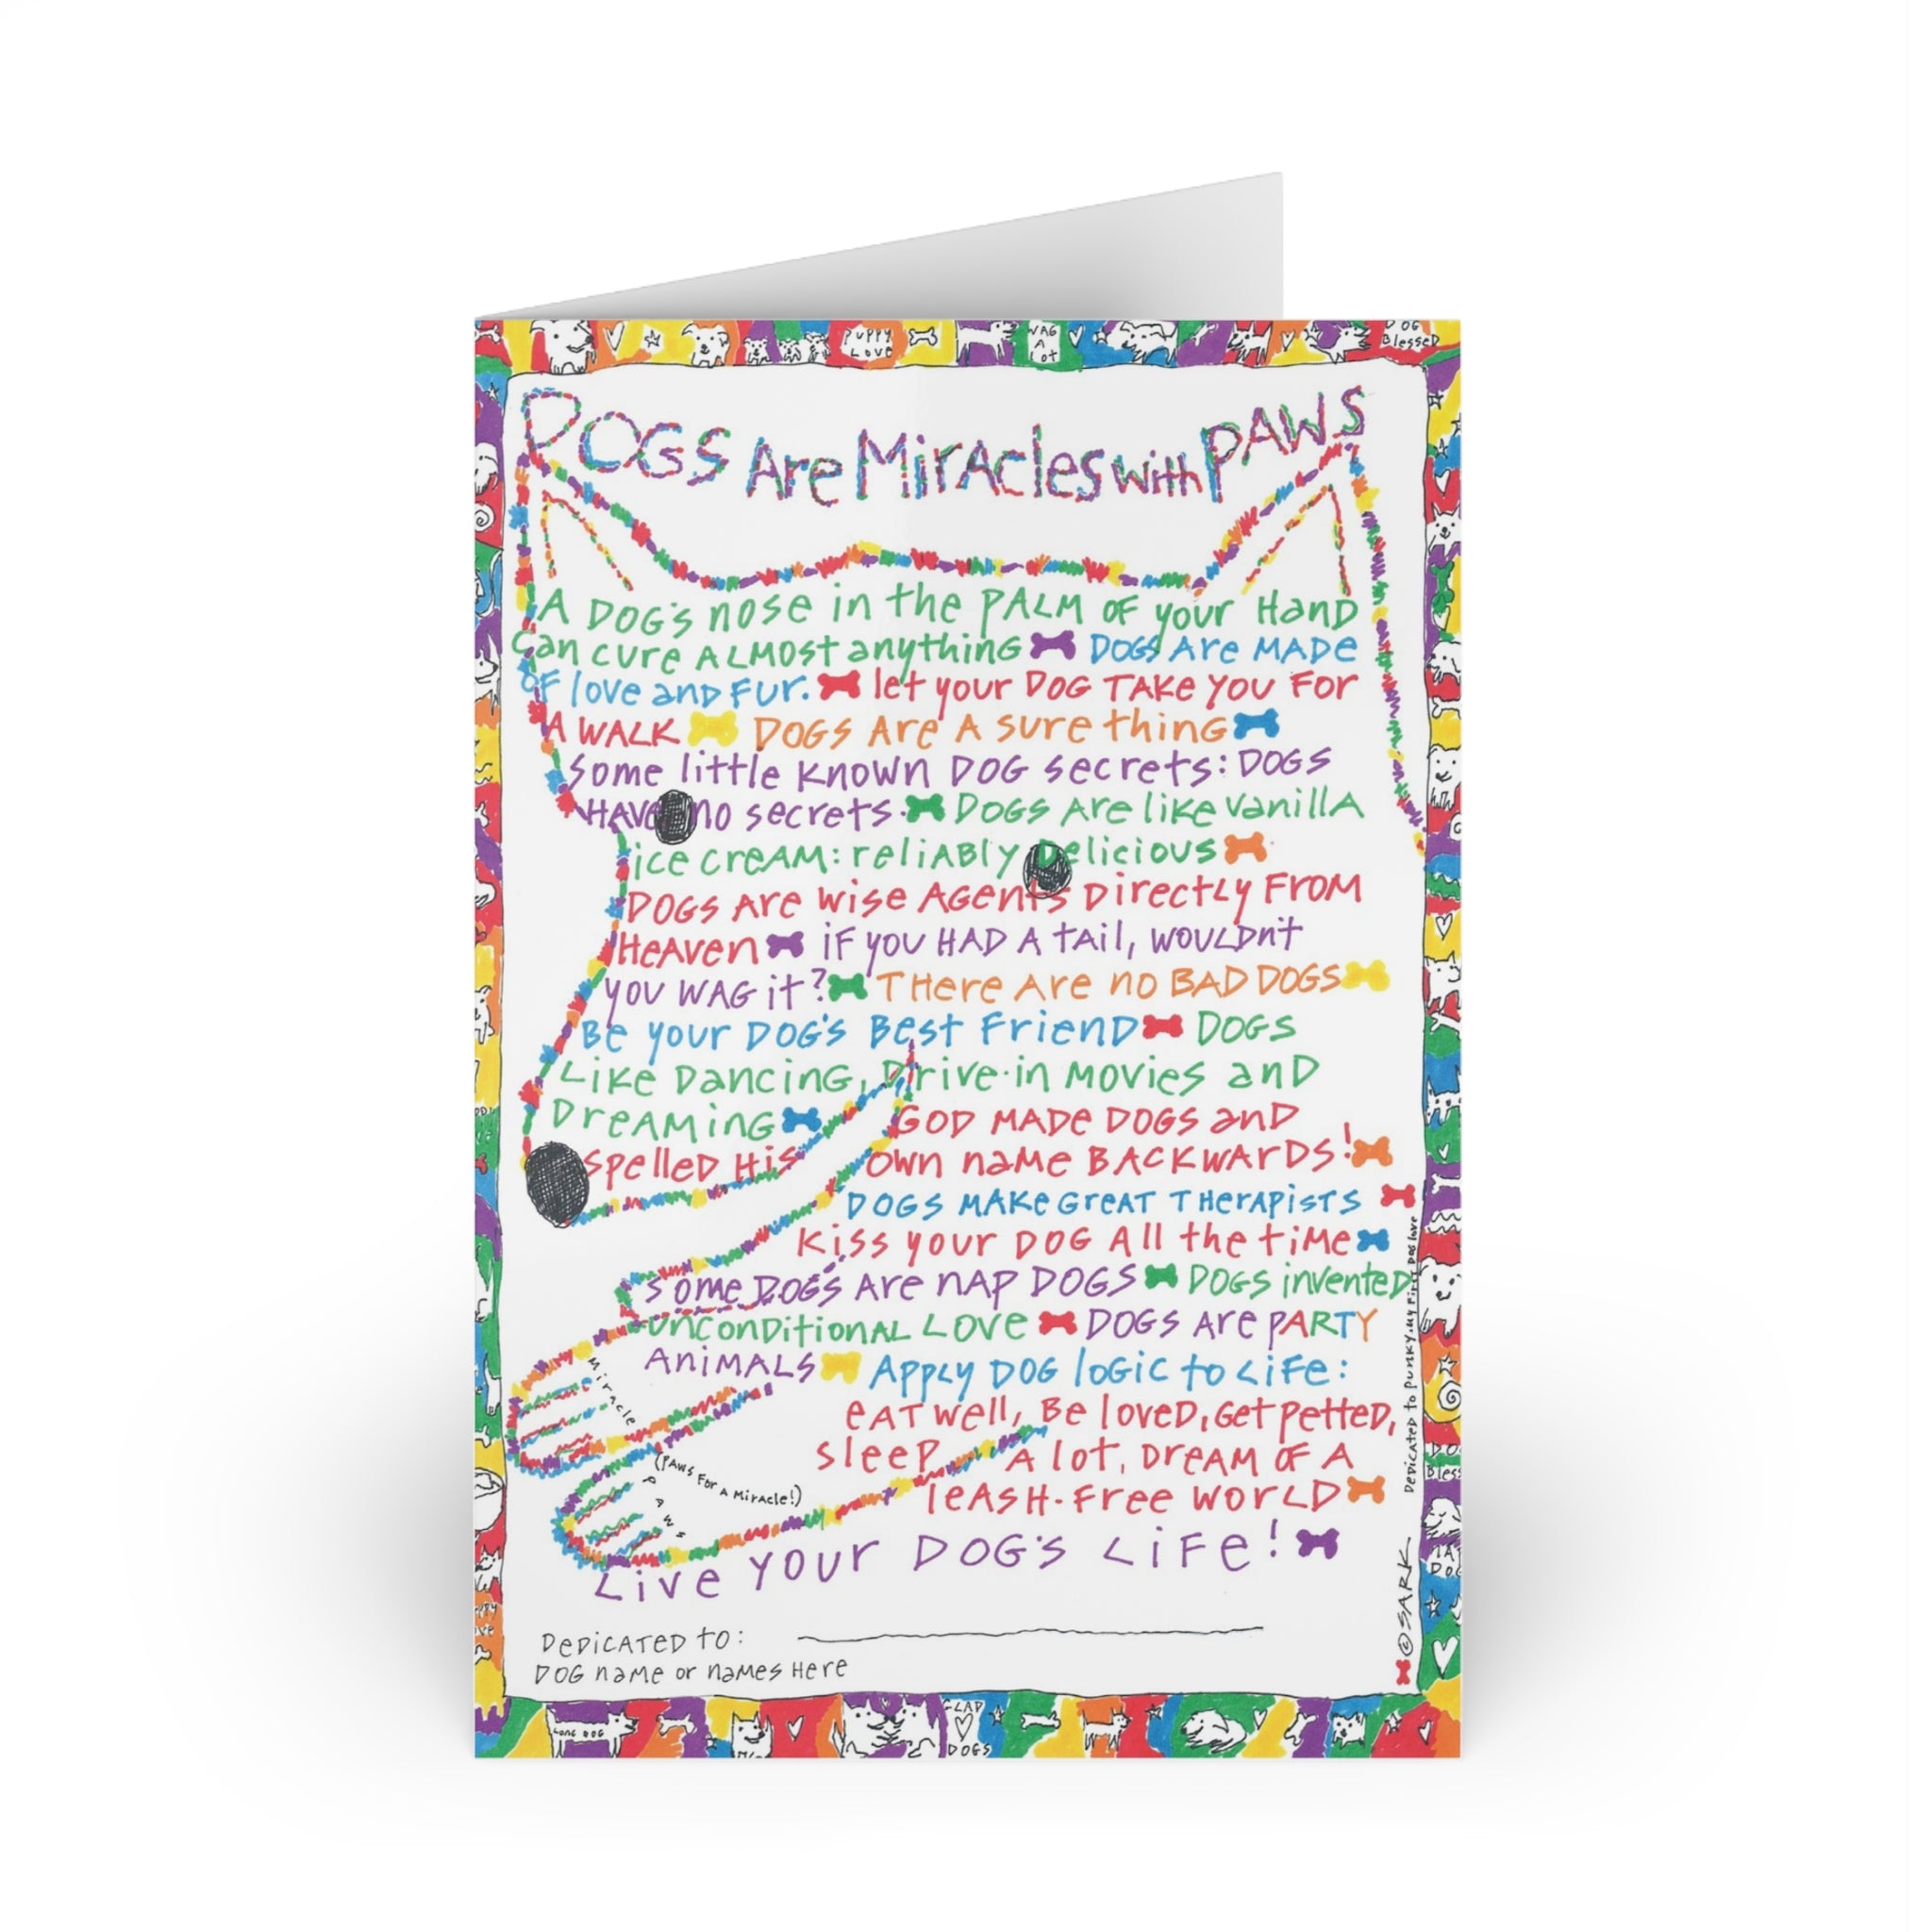 PUPPY
LOVE
WAG
A
LOT
DOG
Blessed
DOGS Are MirAcles with PAWS
A DOG's nose in the PALM OF your Hand
Can cure ALMOst anything DOGS Are MADE
OF love and Fur. let your DOG TAKE YOU FOR
A WALK DOGS Are A sure thing
Some little KNOWN DOG secrets: DOGS
HAVE no secrets. DOGS Are like vanillA
ice creAM: reliABly Delicious
DOGS Are Wise Agents Directly From
HeAven iF you HAD A tail, WOULDn't
you WAG it? THere Are no BAD DOGS
Be your DOG's Best Friend DOGS
Like Dancing, Drive-in Movies and
DreAMing GOD MADE DOGS and
spelled His own name BACKWArDS!
DOGS MAKe GreAT THerAPisTS
Kiss your DOG All the tiMe
Some DOGS Are nAP DOGS DOGS invented
unconDitionAL LOVe DOGS Are PARTY
AniMALS Apply DOG logic to Life:
eAT well, Be loved, Get Petted,
sleep A lot, Dream OF A
leASH-Free World
Live your DOG's Life!
Miracle
(PAWS For A Miracle!)
PAWS
DeDicATeD to Punky, My First Dog love
© SARK
DeDicATeD to:
DOG name or names Here
LONG DOG
GLAD
DOGS